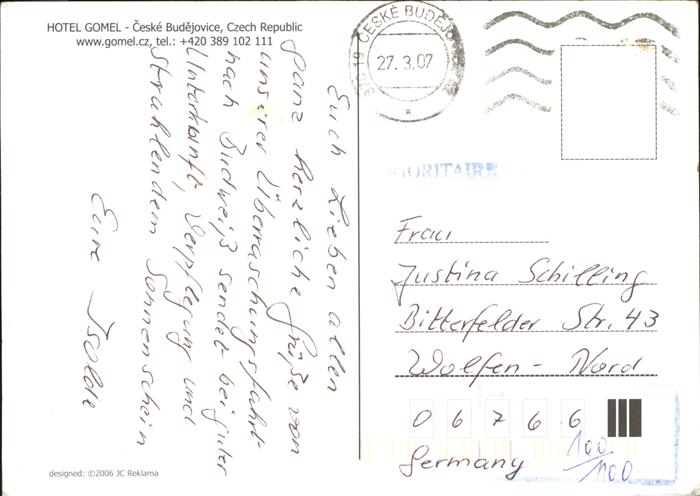 HOTEL GOMEL - České Budějovice, Czech Republic
www.gomel.cz, tel.: +420 389 102 111
Euch Lieben allen
ganz herzliche Grüße von
unserer Überraschungsfahrt
nach Budweiß sendet bei guter
Unterkunft, Verpflegung und
strahlendem Sonnenschein
Eure Isolde
designed: ©2006 JC Reklama
ČESKÉ BUDĚJO
27.3.07
PRIORITAIRE
Frau
Justina Schilling
Bitterfelder Str. 43
Wolfen - Nord
06766
Germany
100/100